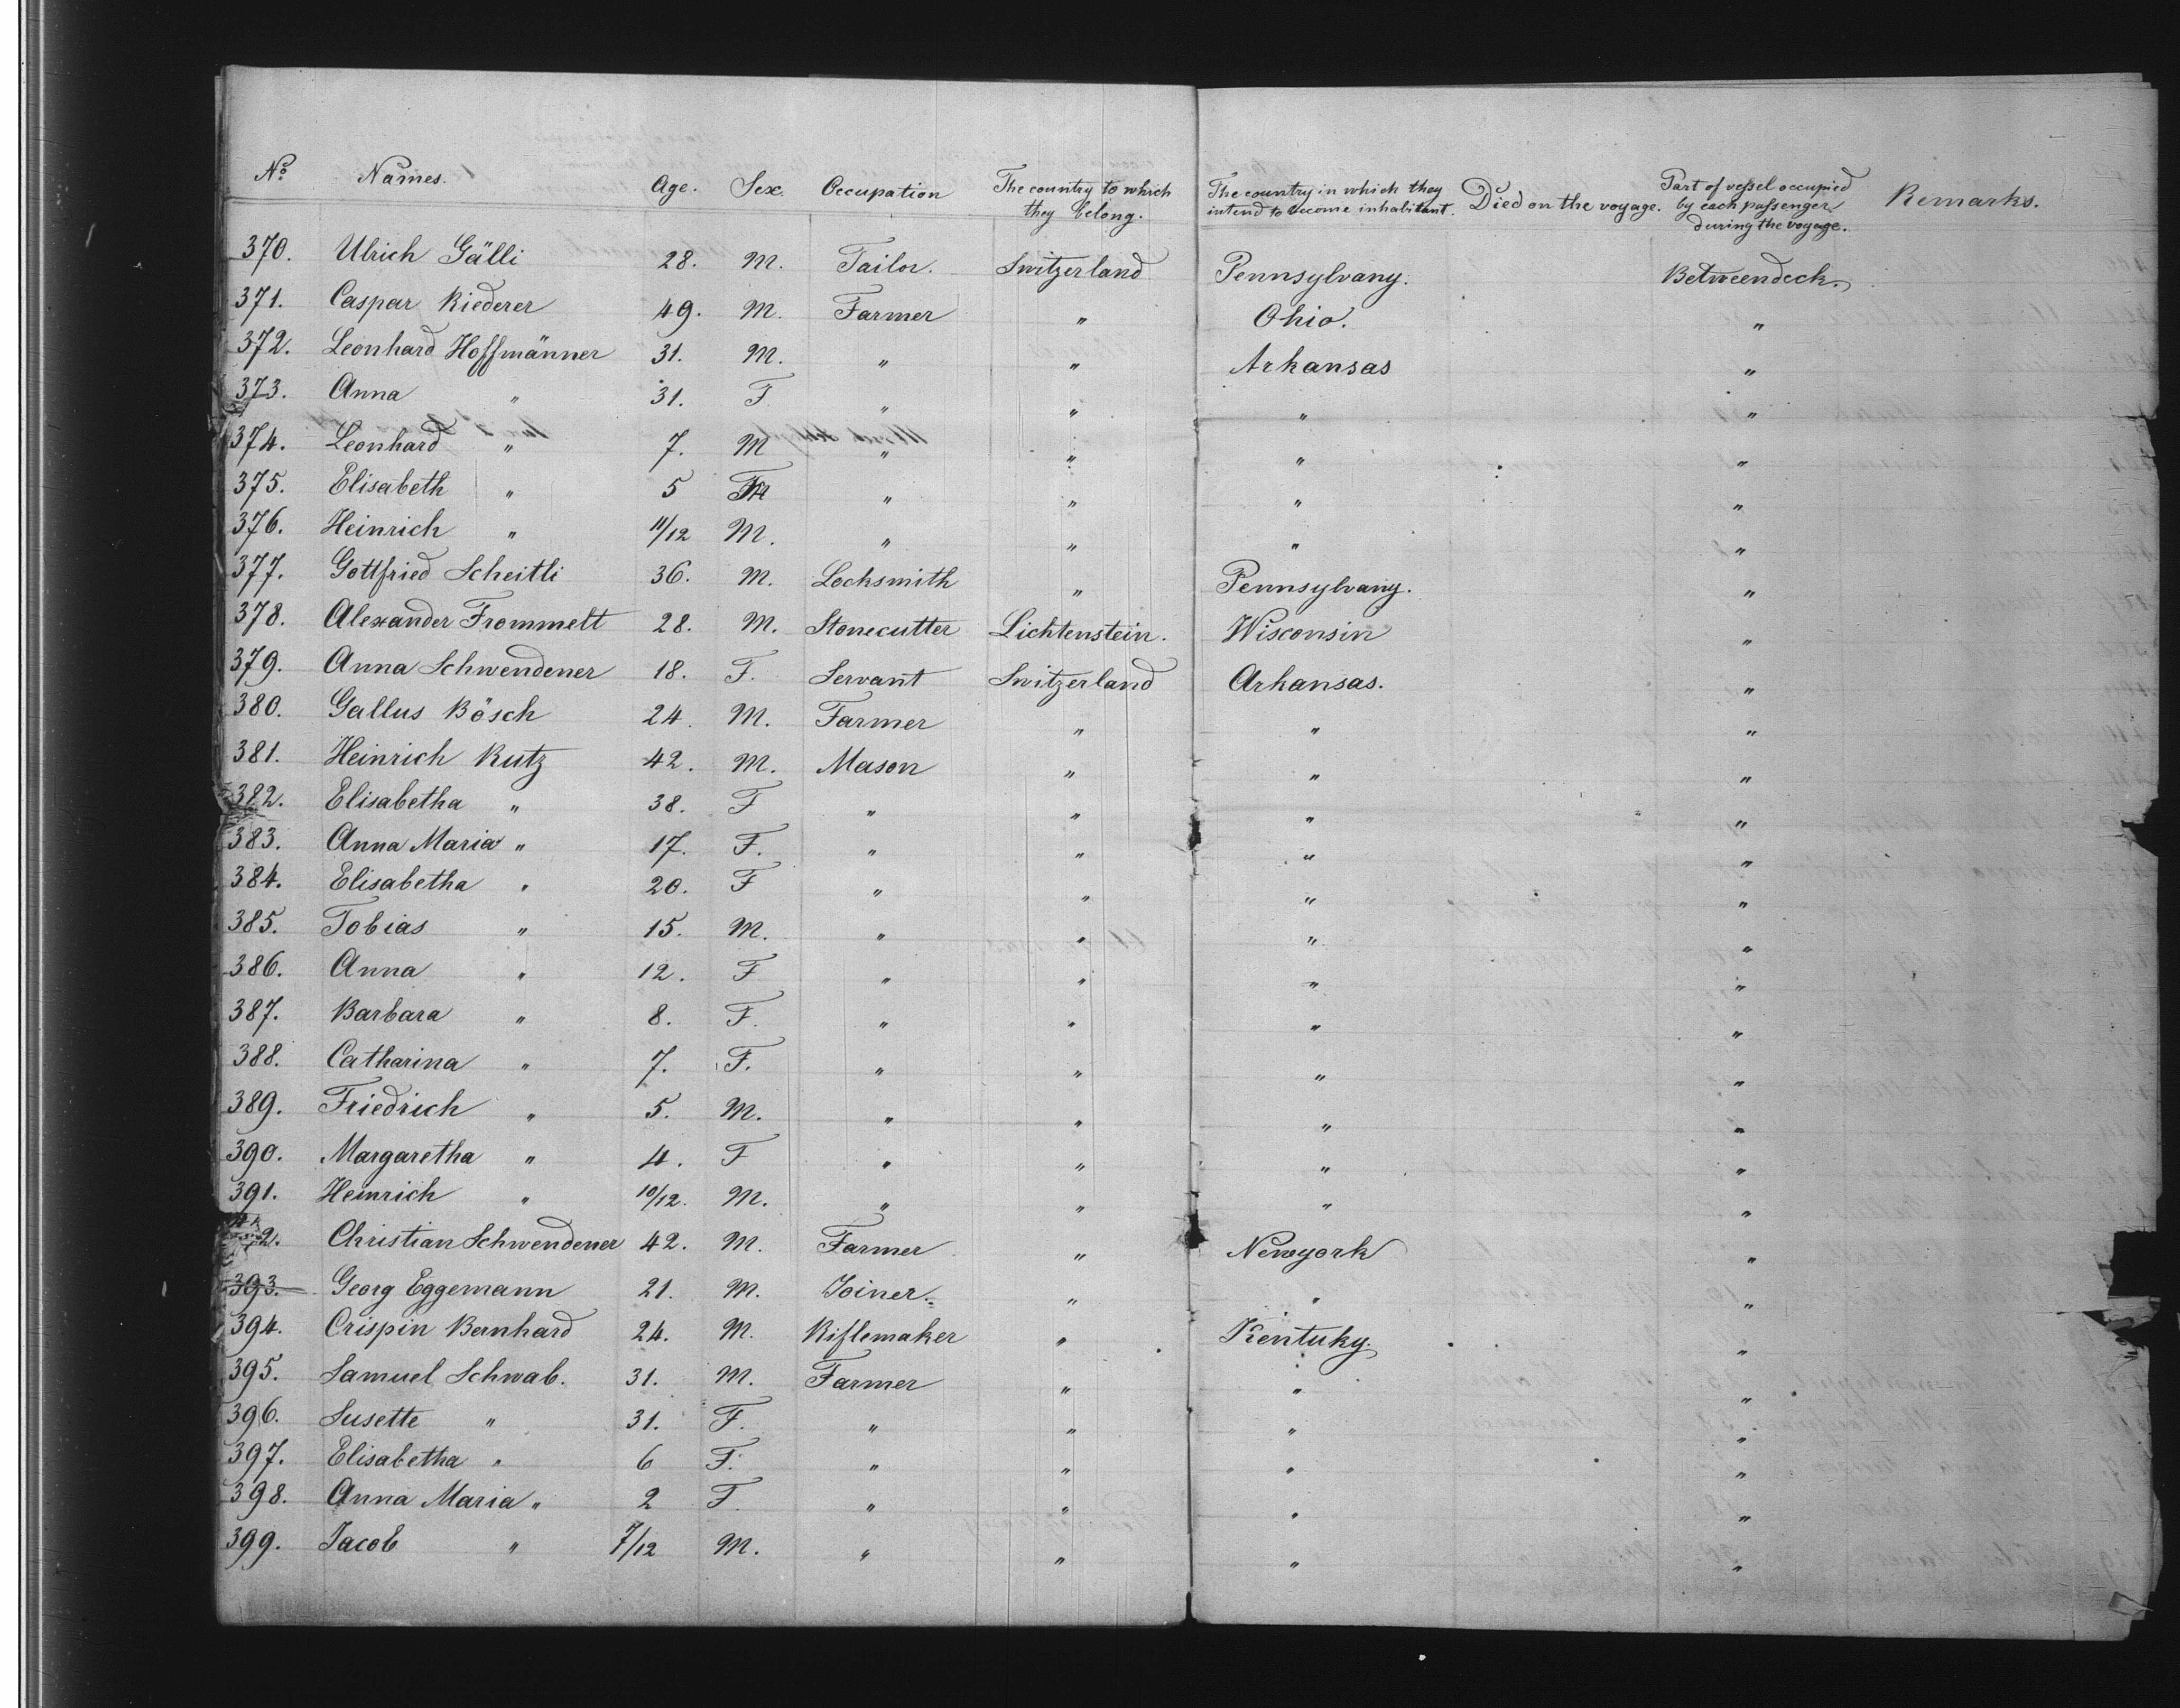 No. Names. Age. Sex. Occupation The country to which they belong. The country in which they intend to become inhabitant. Died on the voyage. Part of vessel occupied by each passenger during the voyage. Remarks.
370. Ulrich Gälli 28. M. Tailor. Switzerland Pennsylvany. Betweendeck.
371. Caspar Riederer 49. M. Farmer " Ohio. "
372. Leonhard Hoffmänner 31. M. " " Arkansas "
373. Anna " 31. F " " " "
374. Leonhard " 7. M " " " "
375. Elisabeth " 5 F " " " "
376. Heinrich " 11/12 M. " " " "
377. Gottfried Scheitli 36. M. Locksmith " Pennsylvany. "
378. Alexander Frommelt 28. M. Stonecutter Lichtenstein. Wisconsin "
379. Anna Schwendener 18. F. Servant Switzerland Arkansas. "
380. Gallus Bösch 24. M. Farmer " " "
381. Heinrich Kutz 42. M. Mason " " "
382. Elisabetha " 38. F " " " "
383. Anna Maria " 17. F. " " " "
384. Elisabetha " 20. F " " " "
385. Tobias " 15. M. " " " "
386. Anna " 12. F " " " "
387. Barbara " 8. F. " " " "
388. Catharina " 7. F. " " " "
389. Friedrich " 5. M. " " " "
390. Margaretha " 4. F " " " "
391. Heinrich " 10/12. M. " " " "
2. Christian Schwendener 42. M. Farmer " Newyork "
393. Georg Eggemann 21. M. Joiner. " " "
394. Crispin Bernhard 24. M. Riflemaker " Kentuky. "
395. Samuel Schwab. 31. M. Farmer " " "
396. Susette " 31. F. " " " "
397. Elisabetha " 6 F. " " " "
398. Anna Maria " 2 F. " " " "
399. Jacob " 7/12 M. " " " "